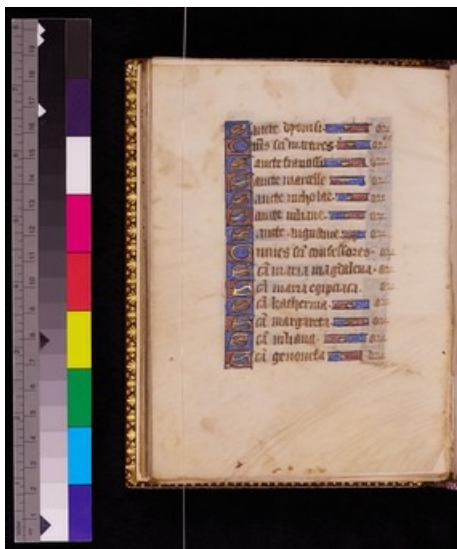 Sancte dyonisi. or.
Om̄s sc̄i martires. or.
Sancte francisce or.
Sancte marcelle or.
Sancte nicholae. or.
Sancte iuliane. or.
Sancte augustine. or.
Omnes sc̄i confessores. or.
Sc̄a maria magdalena. or.
Sc̄a maria egipciaca. or.
Sc̄a katherina. or.
Sc̄a margareta. or.
Sc̄a iuliana. or.
Sc̄a genovefa or.